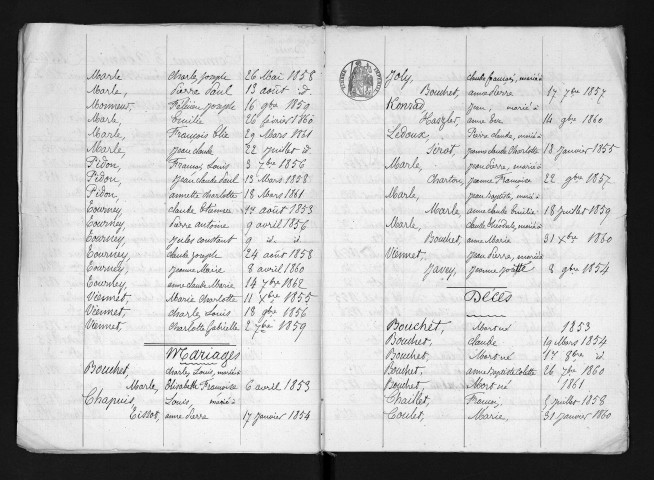 Marle charles Joseph 26 Mai 1858
Marle, Pierre Paul 13 août d.
Monneur, Félicien Joseph 16 gbre 1859
Marle, Emilie 26 février 1860
Marle, François Elie 29 Mars 1861
Marle, Jean claude 22 Juillet d.
Pidon, François Louis 3 7bre 1856
Pidon, Jean claude Paul 13 Mars 1858
Pidon, annette charlotte 18 Mars 1861
Tourney, claude Etienne 14 août 1853
Tourney, Pierre antoine 9 avril 1856
Tourney, Jules constant 9 d. d.
Tourney, claude Joseph 24 août 1858
Tourney, Jeanne Marie 8 avril 1860
Tourney, anne claude Marie 14 7bre 1862
Viennet, Marie charlotte 11 Xbre 1855
Viennet, charles Louis 18 gbre 1856
Viennet, charlotte 2 7bre 1859
Mariages
Bouchet, charles Louis, marié à
Marle, Elisabeth Françoise 6 avril 1853
Chapuis, Louis, marié à
Tissot, anne Pierra 17 Janvier 1854
Joly, claude françois, marié à
Bouchet, anne Pierra 17 7bre 1857
Konrad, Jean, marié à
anne 14 gbre 1860
Ledoux, Pierre claude, marié à
Jeanne claude Charlotte 18 Janvier 1855
Marle, Jean Pierre, marié à
Charton, Jeanne Françoise 22 gbre 1857
Marle, Jean Baptiste, marié à
Marle, anne claude Emilie 18 Juillet 1859
Marle, claude marié à
Bouchet, anne Marie 31 Xbre 1860
Viennet, Jean Pierre, marié à
Javey, Jeanne 8 gbre 1854
Décès
Bouchet, Mort né 1853
Bouchet, claude 19 Mars 1854
Bouchet, Mort né 17 8bre d.
Bouchet, anne Baptiste Colette 26 7bre 1860
Bouchet, Mort né 1861
Chaillet, François 5 Juillet 1858
Coulet, Marie, 31 Janvier 1860